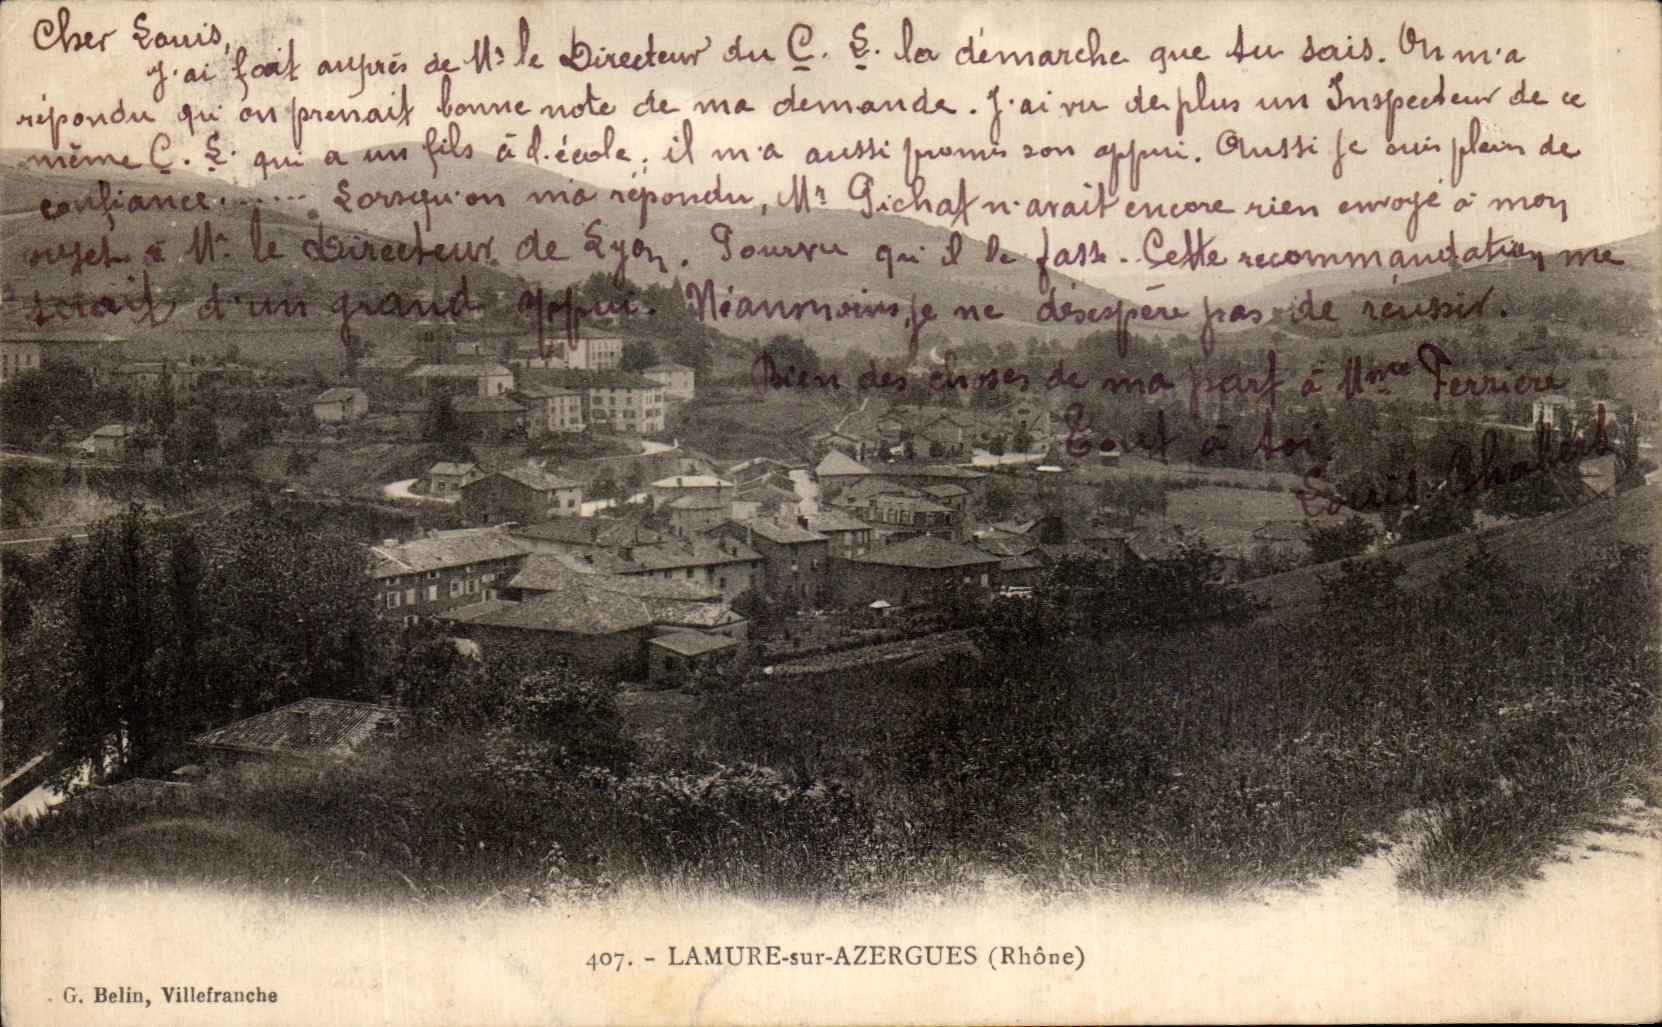 Cher Louis,
J'ai fait auprès de Mr le Directeur du C. L. la démarche que tu sais. On m'a
répondu qu'on prenait bonne note de ma demande. J'ai vu de plus un Inspecteur de ce
même C. L. qui a un fils à l'école; il m'a aussi promis son appui. Aussi je suis plein de
confiance....... Lorsqu'on m'a répondu, Mr Pichat n'avait encore rien envoyé à mon
sujet à Mr le Directeur de Lyon. Pourvu qu'il le fasse. Cette recommandation me
serait d'un grand appui. Néanmoins, je ne désespère pas de réussir.
Bien des choses de ma part à Mme Ferrière
Tout à toi
Louis Chabert
407. - LAMURE-sur-AZERGUES (Rhône)
G. Belin, Villefranche